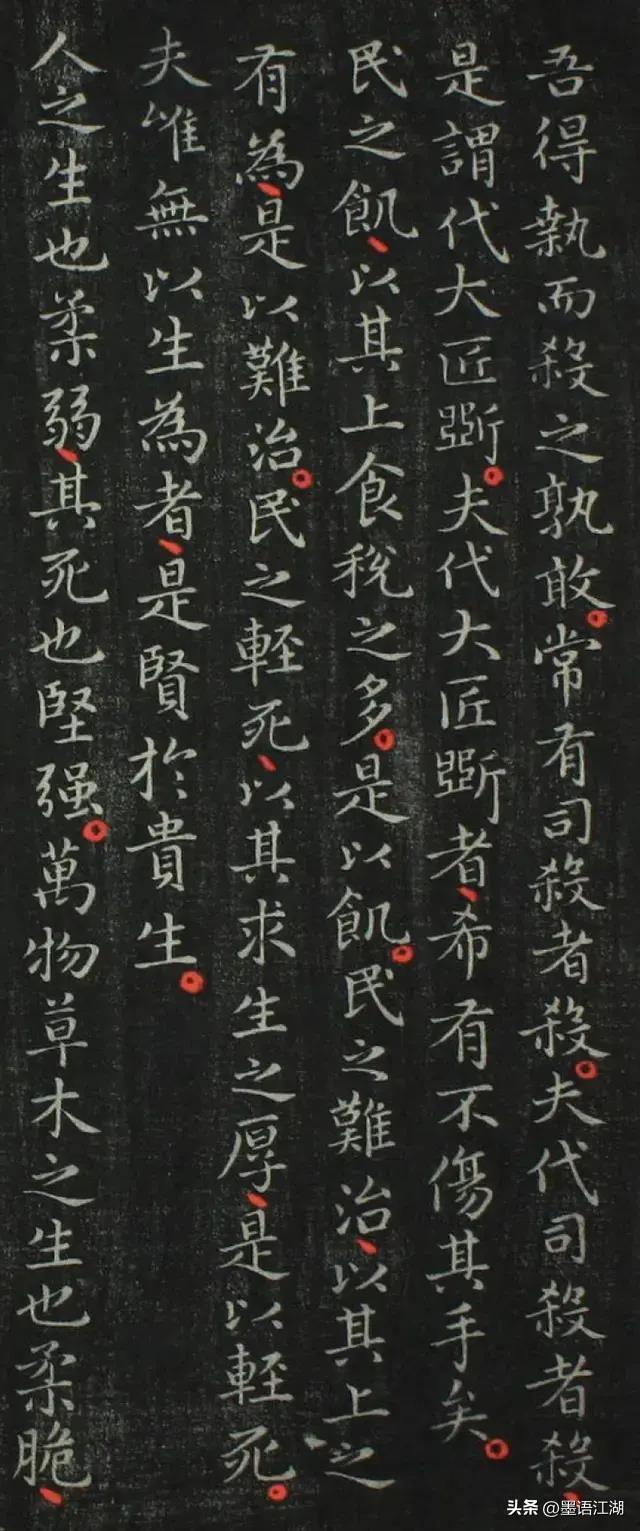 吾得執而殺之孰敢。常有司殺者殺。夫代司殺者殺、
是謂代大匠斲。夫代大匠斲者、希有不傷其手矣。
民之飢、以其上食稅之多。是以飢。民之難治、以其上之
有為、是以難治。民之輕死、以其求生之厚、是以輕死。
夫唯無以生為者、是賢於貴生。
人之生也柔弱、其死也堅强。萬物草木之生也柔脆、
头条 @墨语江湖